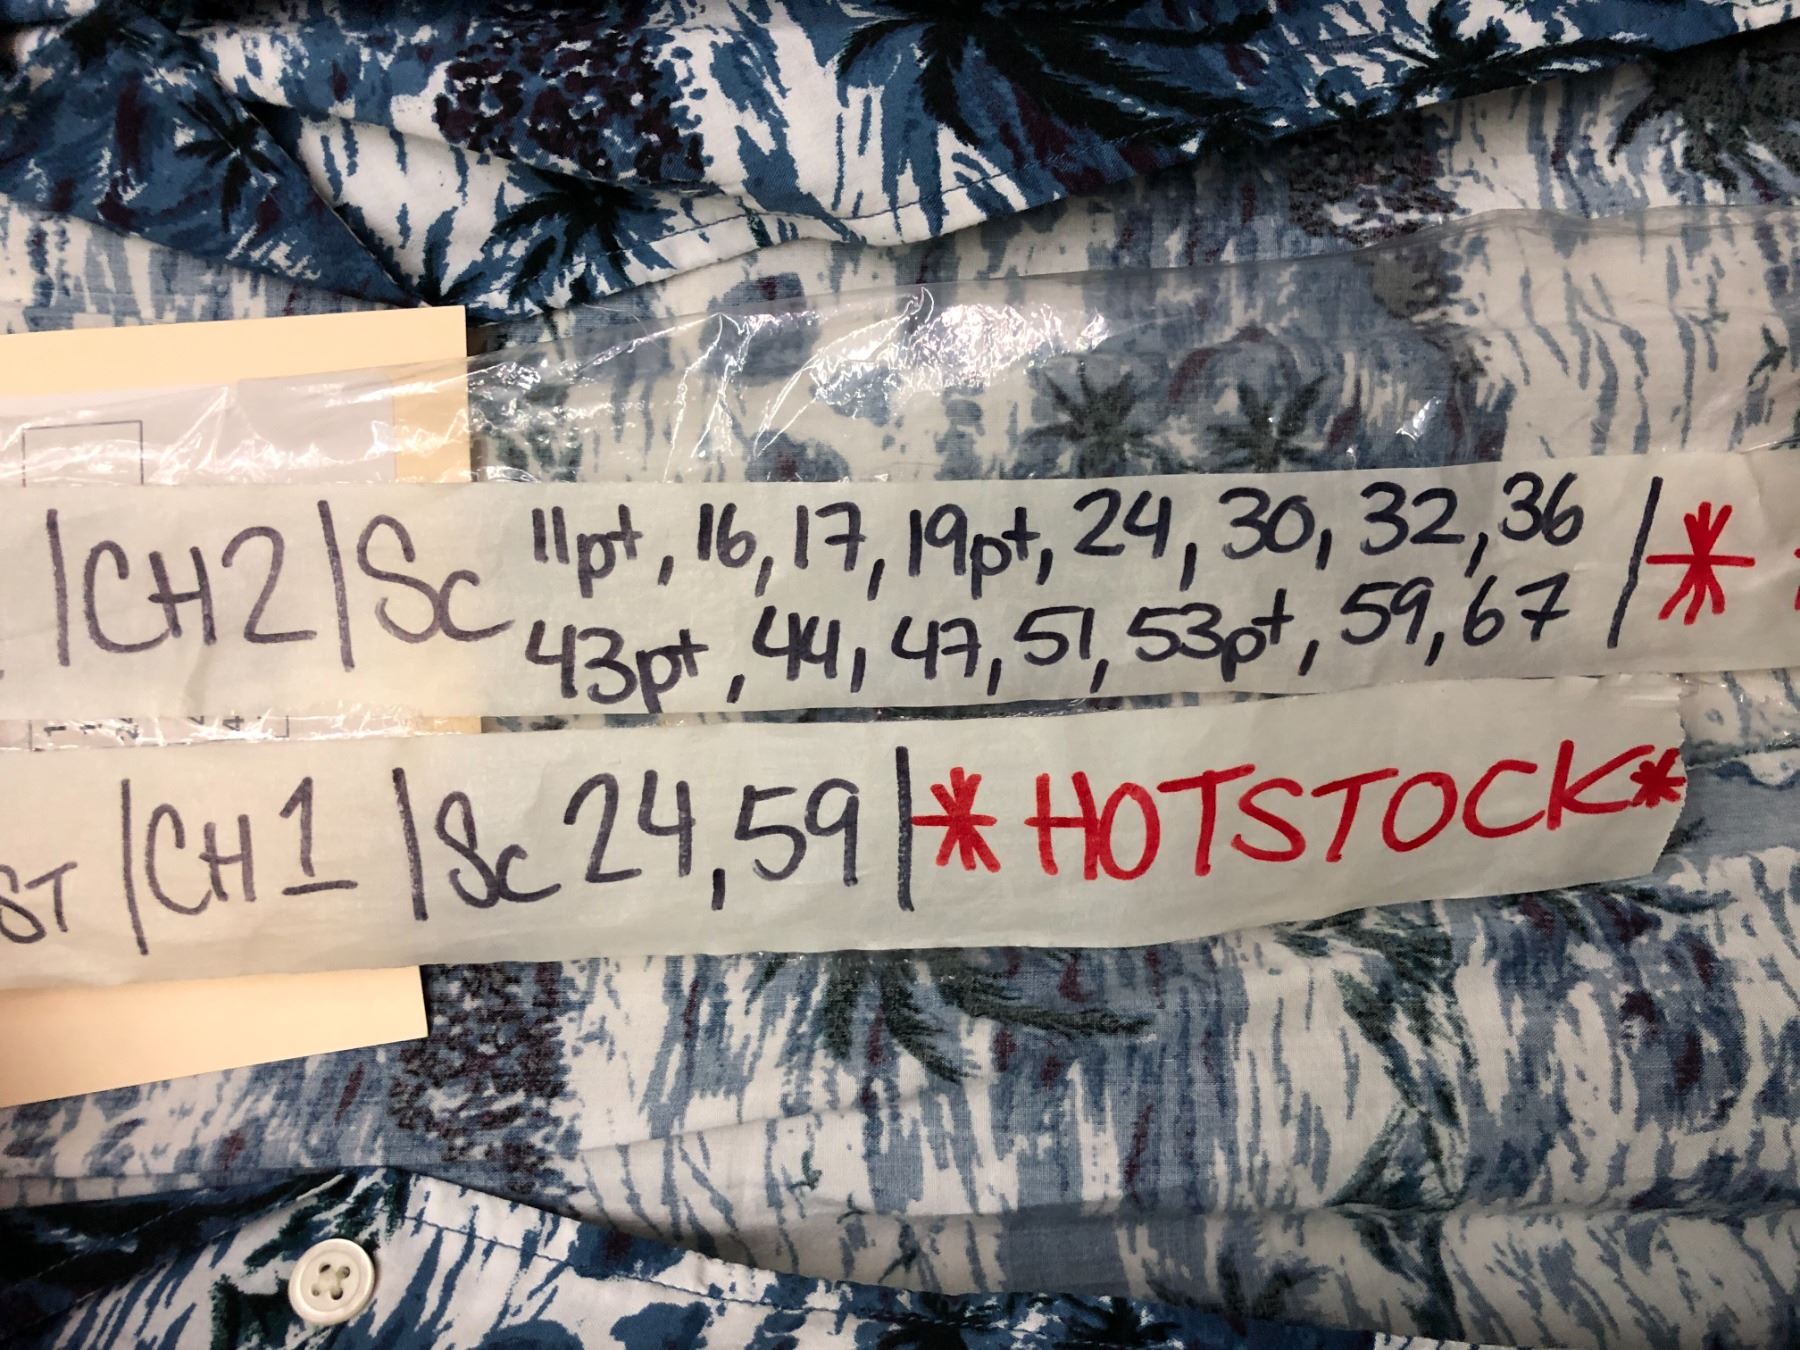 |CH2|Sc 11pt, 16, 17, 19pt, 24, 30, 32, 36 |*
43pt, 44, 47, 51, 53pt, 59, 67
ST |CH 1 |Sc 24, 59 |* HOTSTOCK*